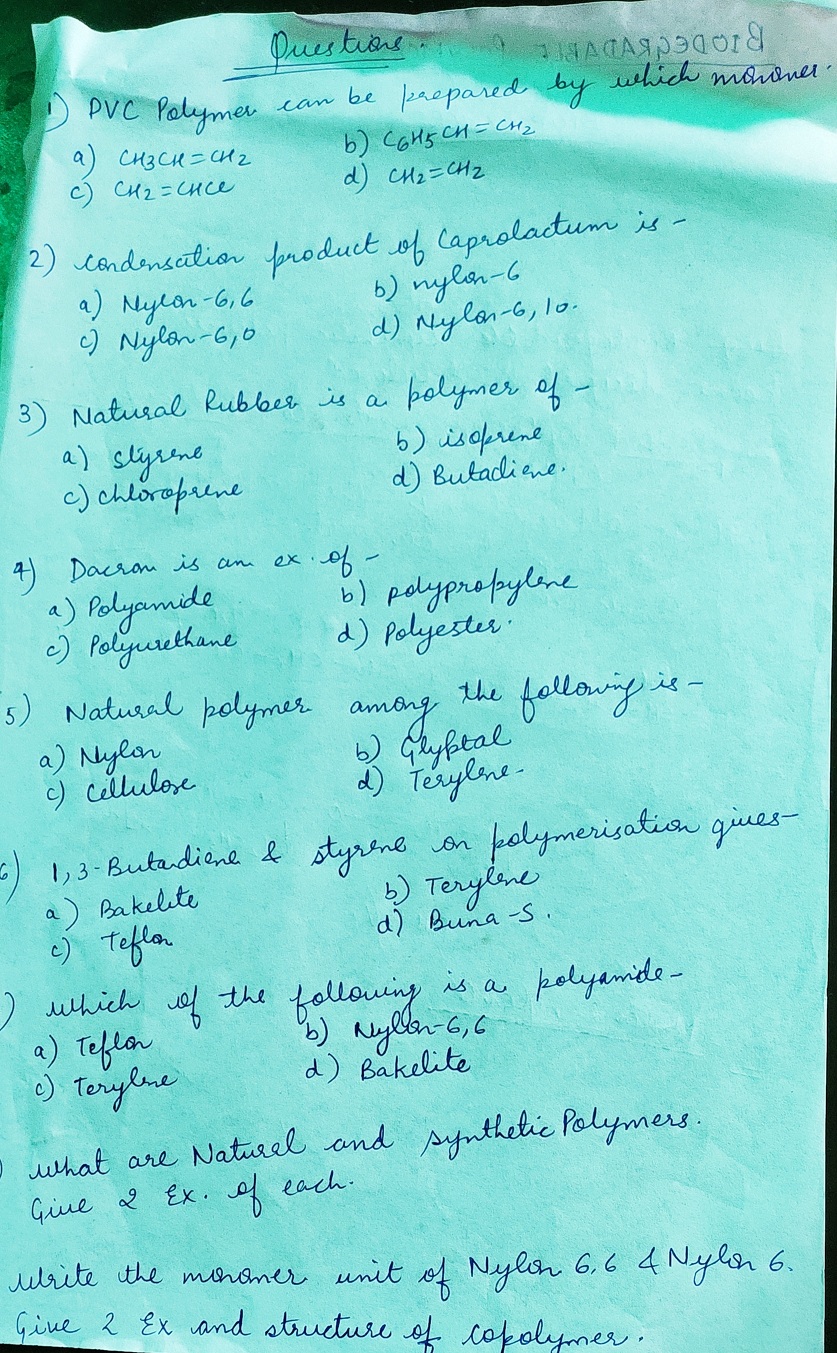 Questions.
BIODEGRADABLE
1) PVC Polymer can be prepared by which monomer.
a) CH3CH=CH2 b) C6H5CH=CH2
c) CH2=CHCl d) CH2=CH2
2) Condensation product of Caprolactum is -
a) Nylon-6,6 b) nylon-6
c) Nylon-6,0 d) Nylon-6,10.
3) Natural Rubber is a polymer of -
a) styrene b) isoprene
c) chloroprene d) Butadiene.
4) Dacron is an ex. of -
a) Polyamide b) polypropylene
c) Polyurethane d) Polyester.
5) Natural polymer among the following is -
a) Nylon b) Glyptal
c) Cellulose d) Terylene-
6) 1,3-Butadiene & styrene on polymerisation gives-
a) Bakelite b) Terylene
c) Teflon d) Buna-S.
) which of the following is a polyamide-
a) Teflon b) Nylon-6,6
c) Terylene d) Bakelite
) what are Natural and synthetic Polymers.
Give 2 Ex. of each.
Write the monomer unit of Nylon 6,6 & Nylon 6.
Give 2 Ex and structure of copolymer.